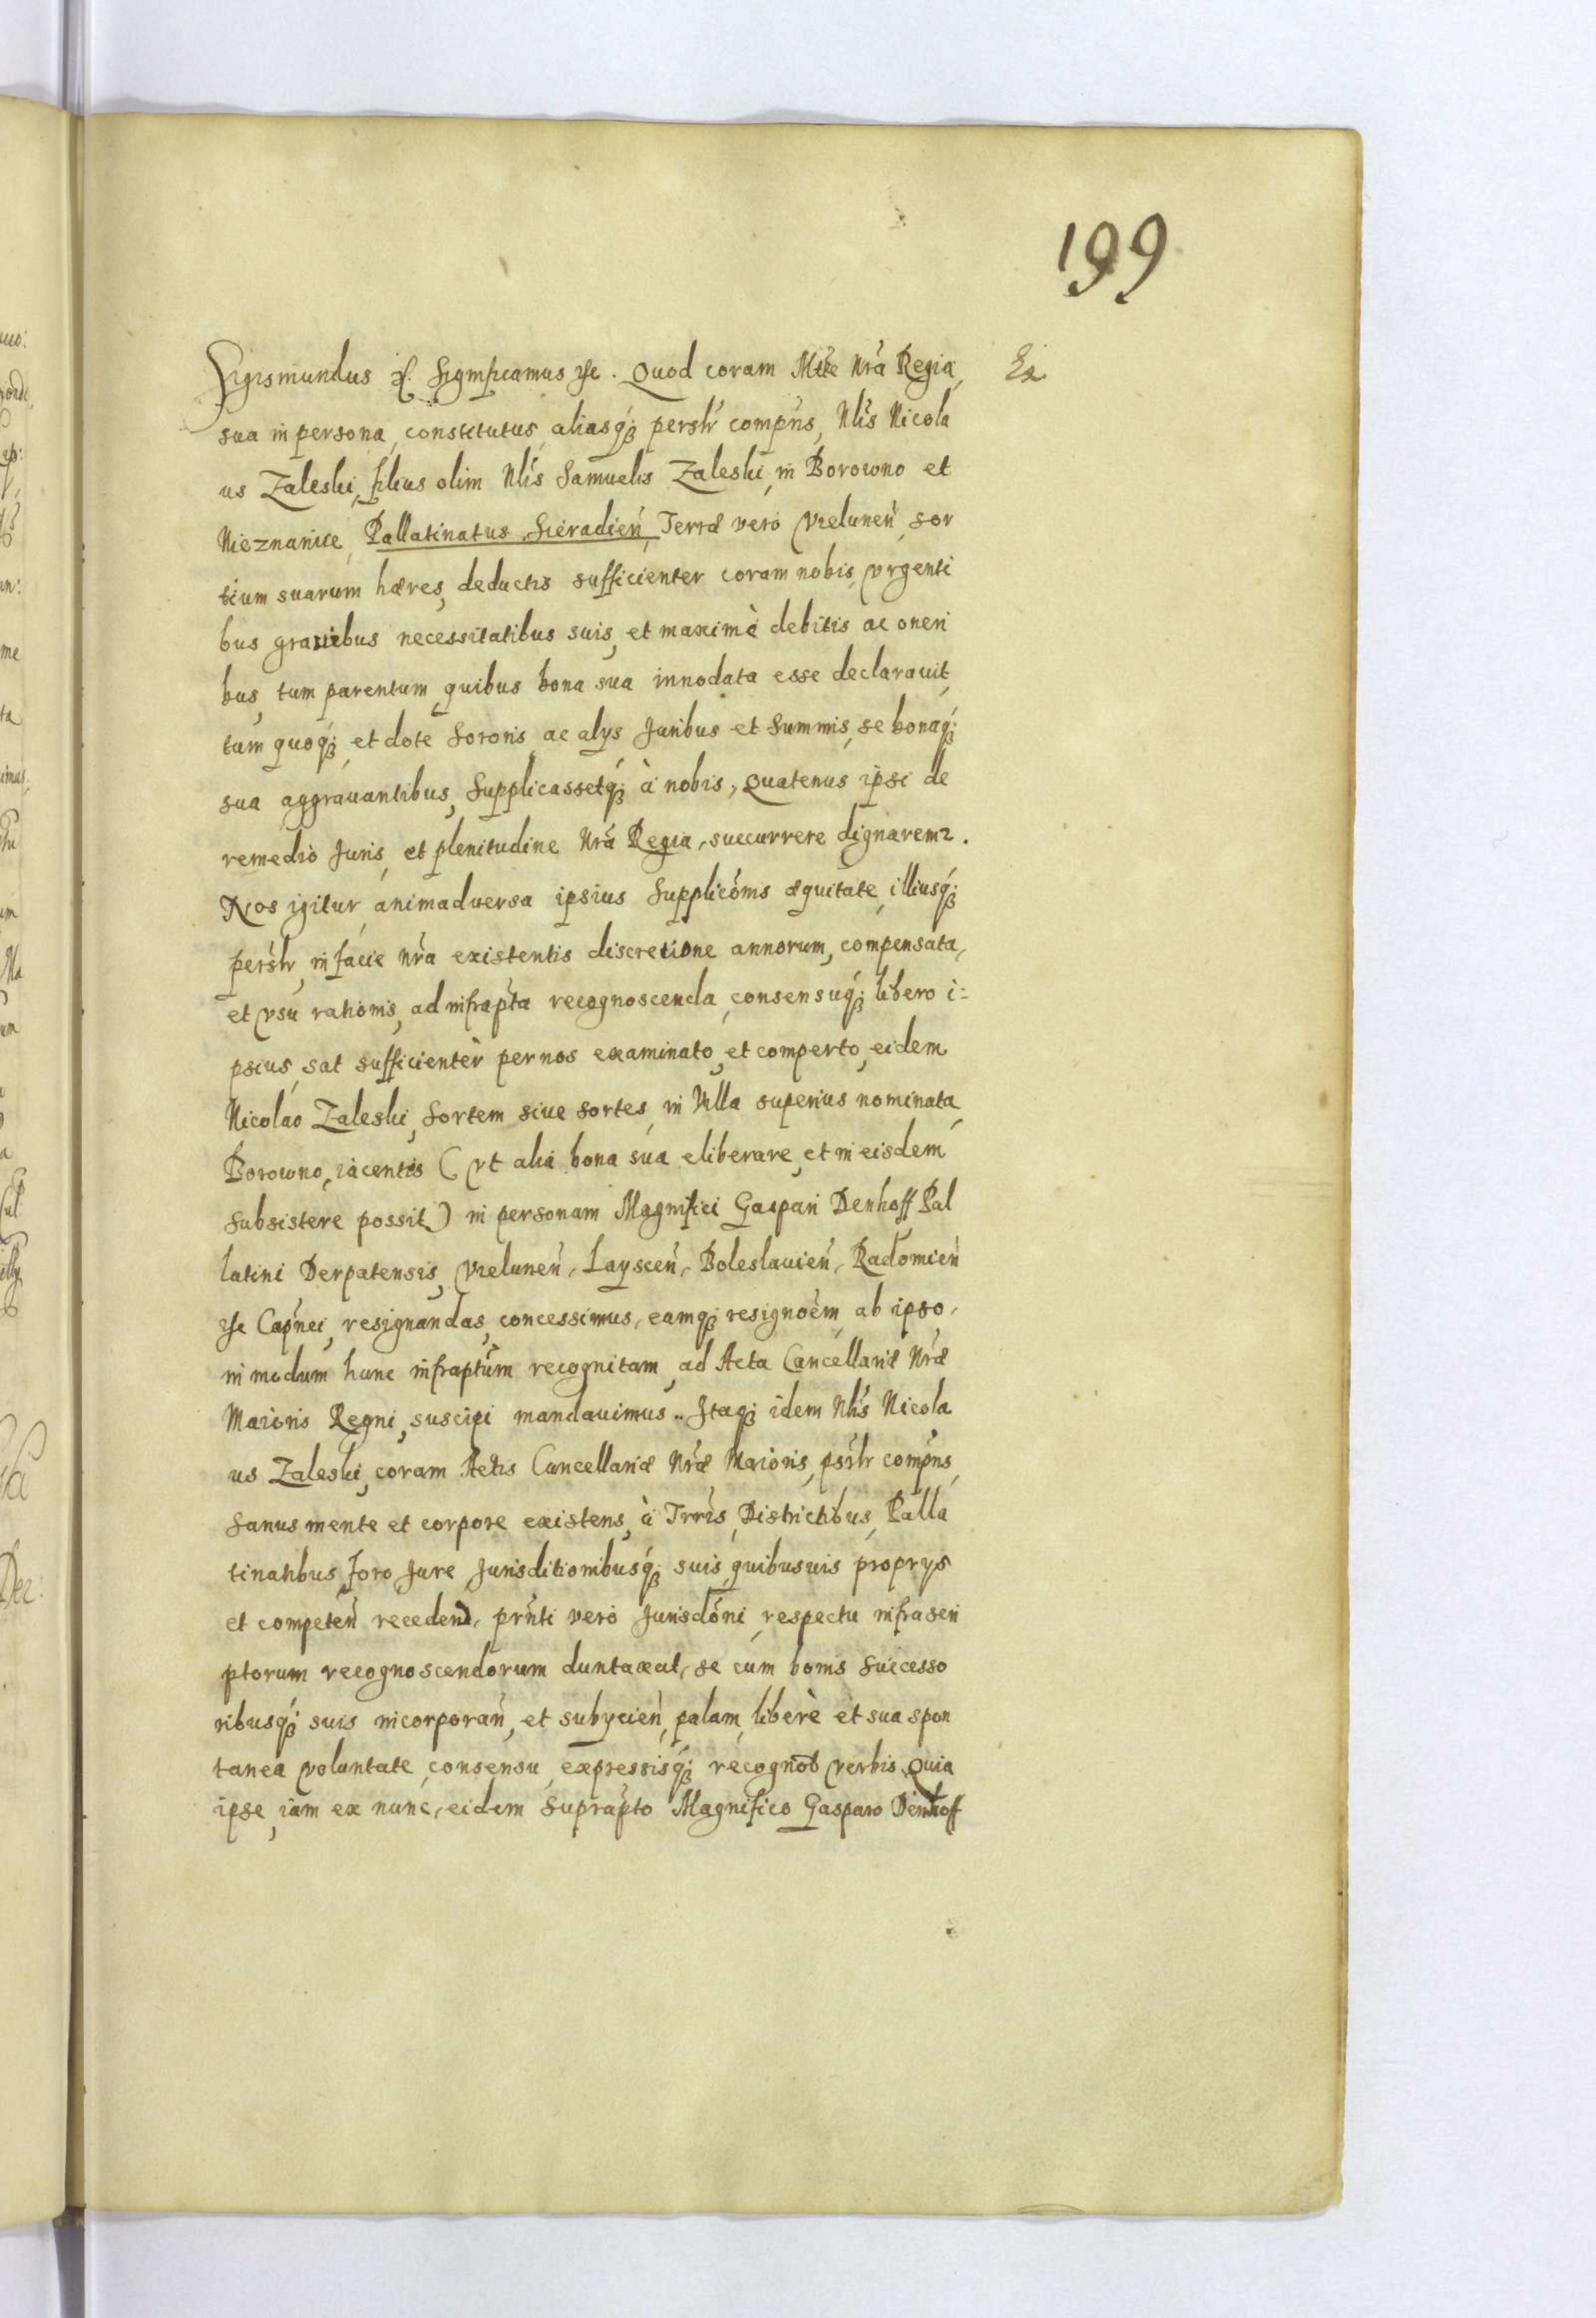 199
Sigismundus etc. Significamus etc. Quod coram Mtte Nrã Regia, Ex
sua in persona, constitutus, aliasq; persłr compñs, Nłis Nicola
us Zaleski, filius olim Nłis Samuelis Zaleski, in Borowno et
Nieznanice, Pallatinatus Sieradień, Terræ vero Vieluneń, sor
tium suarum hæres, deductis sufficienter coram nobis, vrgenti
bus grauibus necessitatibus suis, et maximè debitis ac oneri
bus, tum parentum, quibus bona sua innodata esse declarauit,
tum quoq;, et dote Sororis, ac alys Juribus et Summis, se bonaq;
sua aggrauantibus, Supplicassetq; à nobis, Quatenus ipsi de
remedio Juris, et plenitudine Nrã Regia, succurrere dignarem2.
Nos igitur, animaduersa ipsius Supplicõnis æquitate, illiusq;
persłr, in facie nrã existentis discretione annorum, compensata,
et vsu rationis, ad infrapta recognoscenda, consensuq; libero i=
psius, sat sufficienter per nos examinato, et comperto, eidem
Nicolao Zaleski, Sortem siue Sortes, in Villa superius nominata
Borowno, iacentis (vt alia bona sua eliberare, et in eisdem
subsistere possit) in personam Magnifici Gaspari Denhoff Pal
latini Derpatensis, Vieluneń, Laysceń, Boleslauień, Radomień
etc Capnei, resignandas, concessimus, eamq; resignoẽm, ab ipso,
in modum hunc infraptum recognitam, ad Acta Cancellariæ Nræ
Maioris Regni, suscipi mandauimus.. Itaq; idem Nłis Nicola
us Zaleski, coram Actis Cancellariæ Nræ Maioris, psłr compñs,
Sanus mente et corpore existens, à Trris, Districtibus, Palla
tinatibus, foro Jure Jurisditionibusq; suis, quibusuis proprys
et competeñ recedeñ, prñti vero Jurisdõni, respectu infrascri
ptorum recognoscendorum duntaxat, se cum bonis Successo
ribusq; suis incorporañ, et subycień, palam, liberè et sua spon
tanea voluntate, consensu, expressisq; recognoũ verbis, Quia
ipse, iam ex nunc, eidem Suprapto Magnifico Gasparo Denhoff